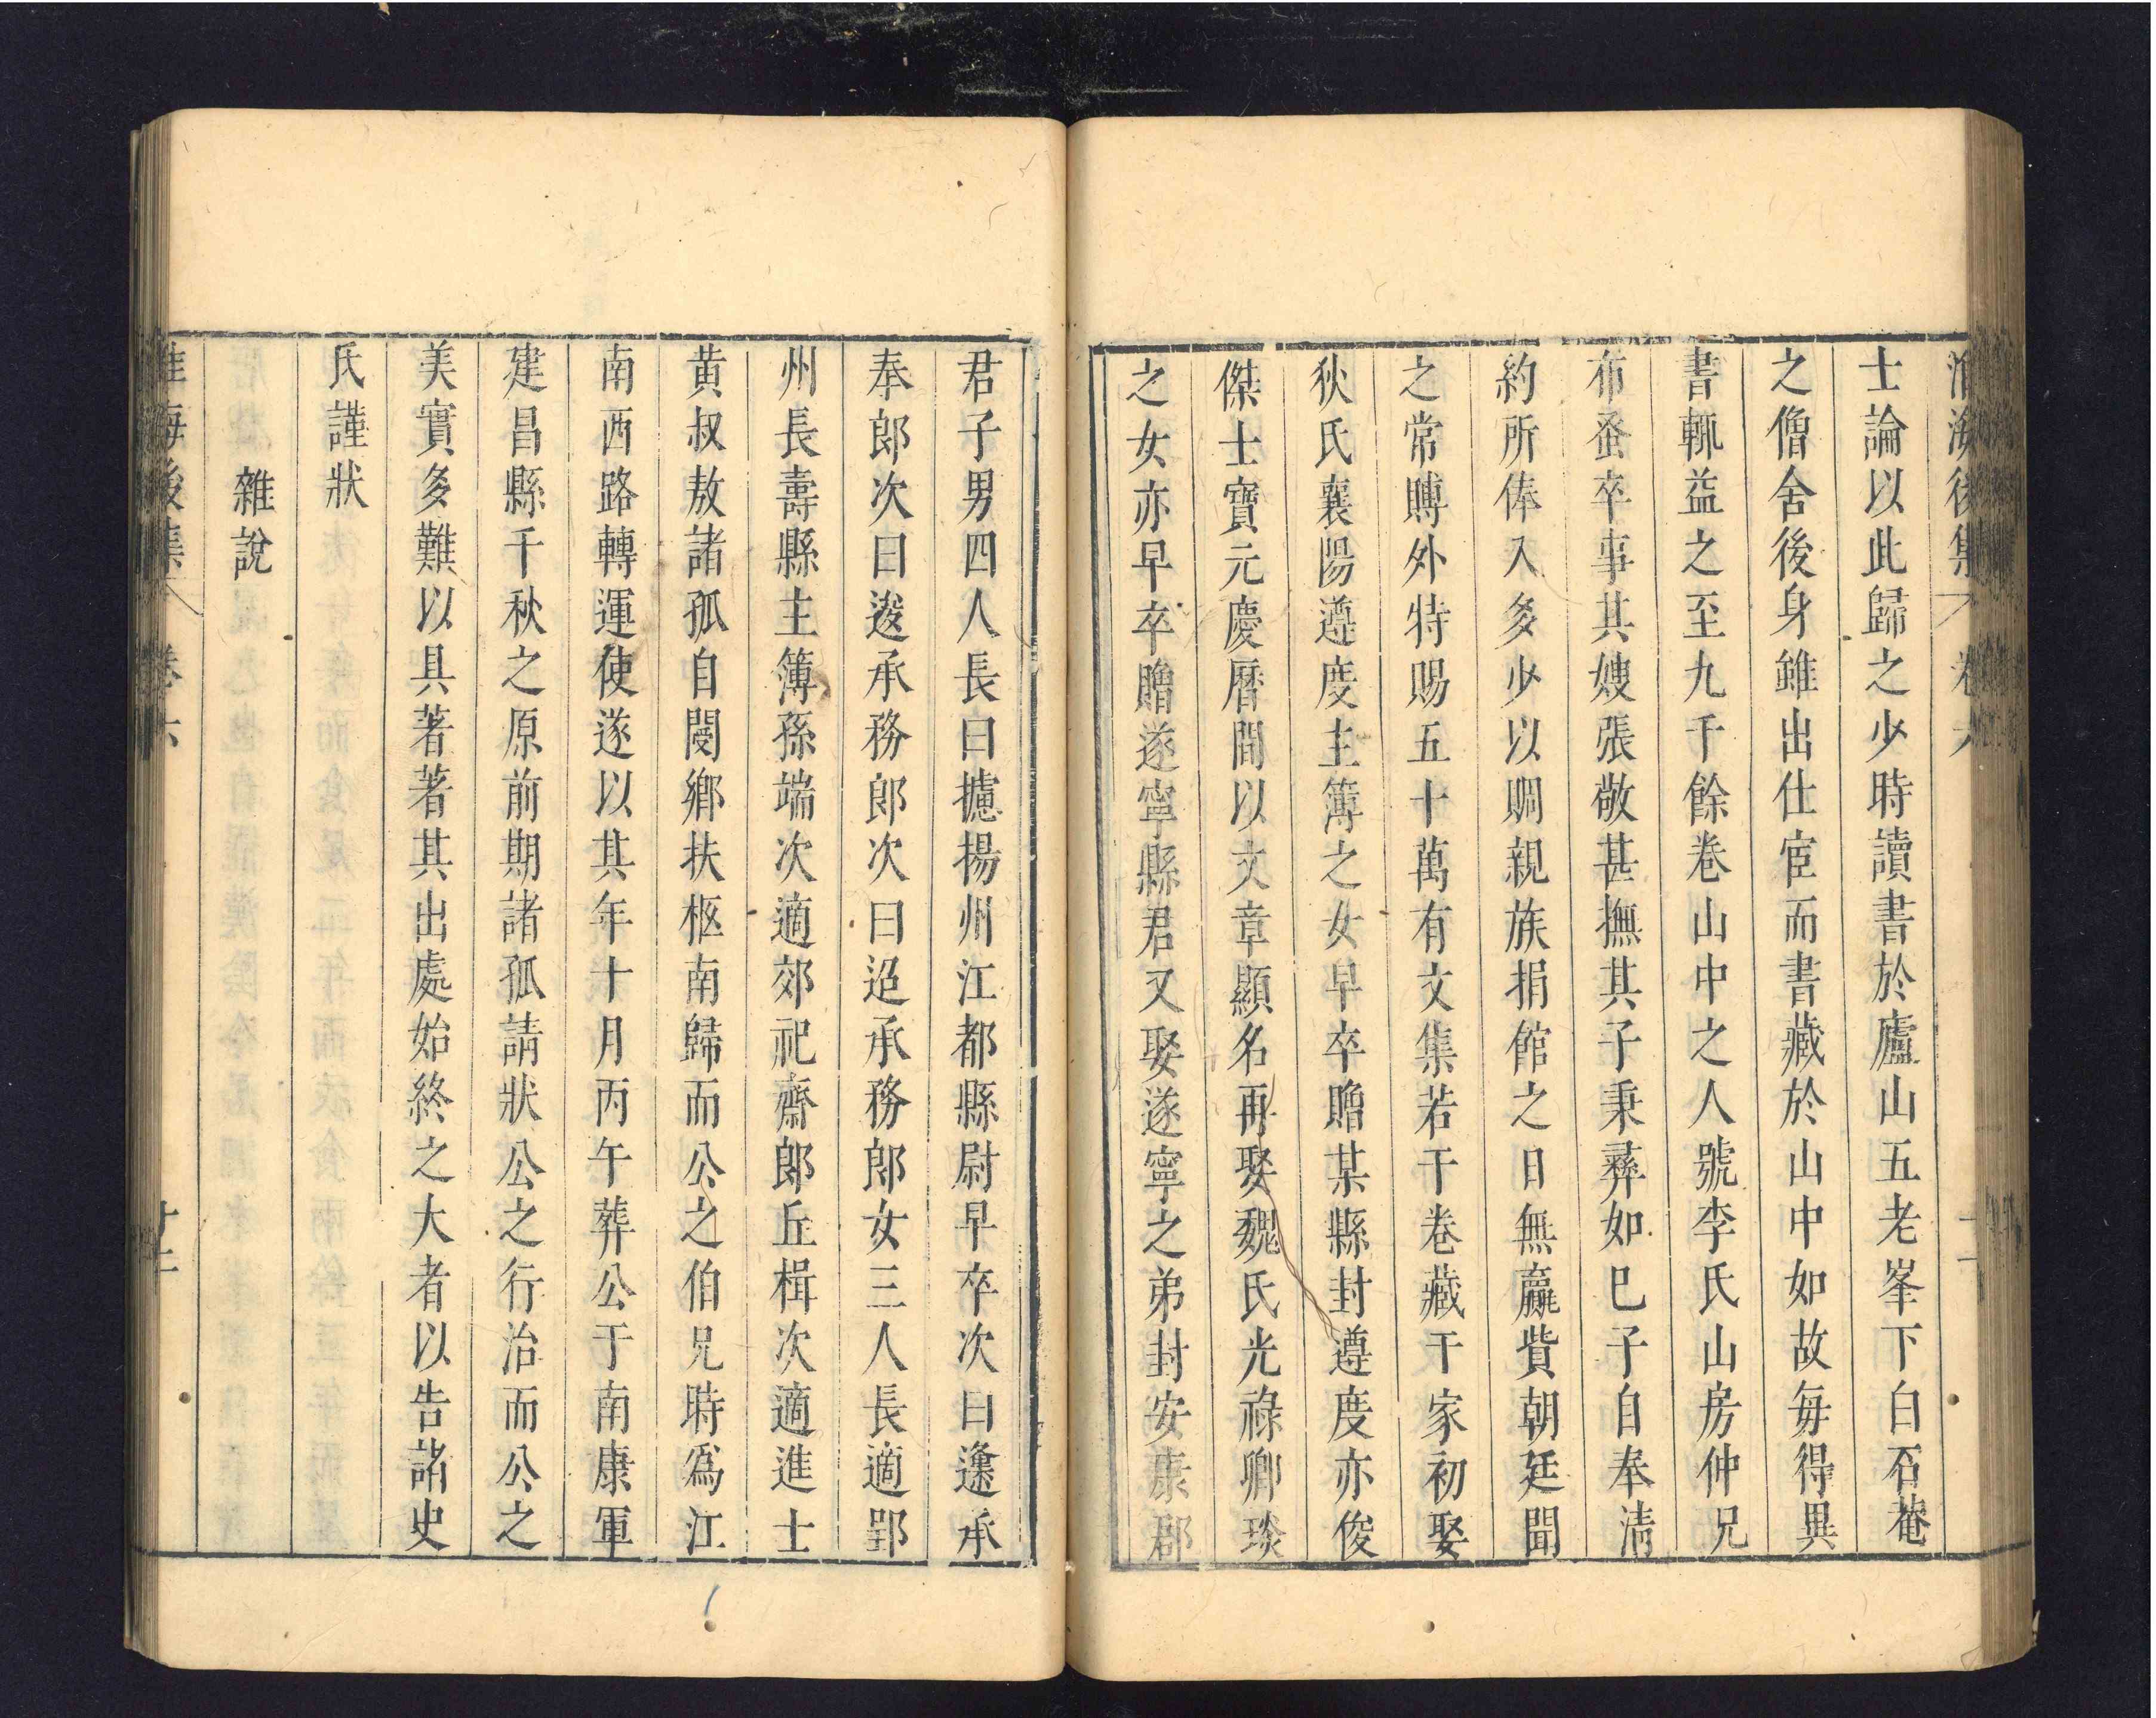 淮海後集 卷六
士論以此歸之少時讀書於廬山五老峯下白石菴
之僧舍後身雖出仕宦而書藏於山中如故每得異
書輒益之至九千餘卷山中之人號李氏山房仲兄
布蚤卒事其嫂張敬甚撫其子秉彝如巳子自奉清
約所俸入多少以賙親族捐館之日無羸貲朝廷聞
之常賻外特賜五十萬有文集若干卷藏于家初娶
狄氏襄陽遵度主簿之女早卒贈某縣封遵度亦俊
傑士寶元慶曆間以文章顯名再娶魏氏光祿卿琰
之女亦早卒贈遂寧縣君又娶遂寧之弟封安康郡
君子男四人長曰攄揚州江都縣尉早卒次曰逢承
奉郎次曰逡承務郎次曰迢承務郎女三人長適郢
州長壽縣主簿孫端次適郊祀齋郎丘楫次適進士
黃叔敖諸孤自閿鄉扶柩南歸而公之伯兄時爲江
南西路轉運使遂以其年十月丙午葬公于南康軍
建昌縣千秋之原前期諸孤請狀公之行治而公之
美實多難以具著著其出處始終之大者以告諸史
氏謹狀
雜說
淮海後集 卷六 廿二